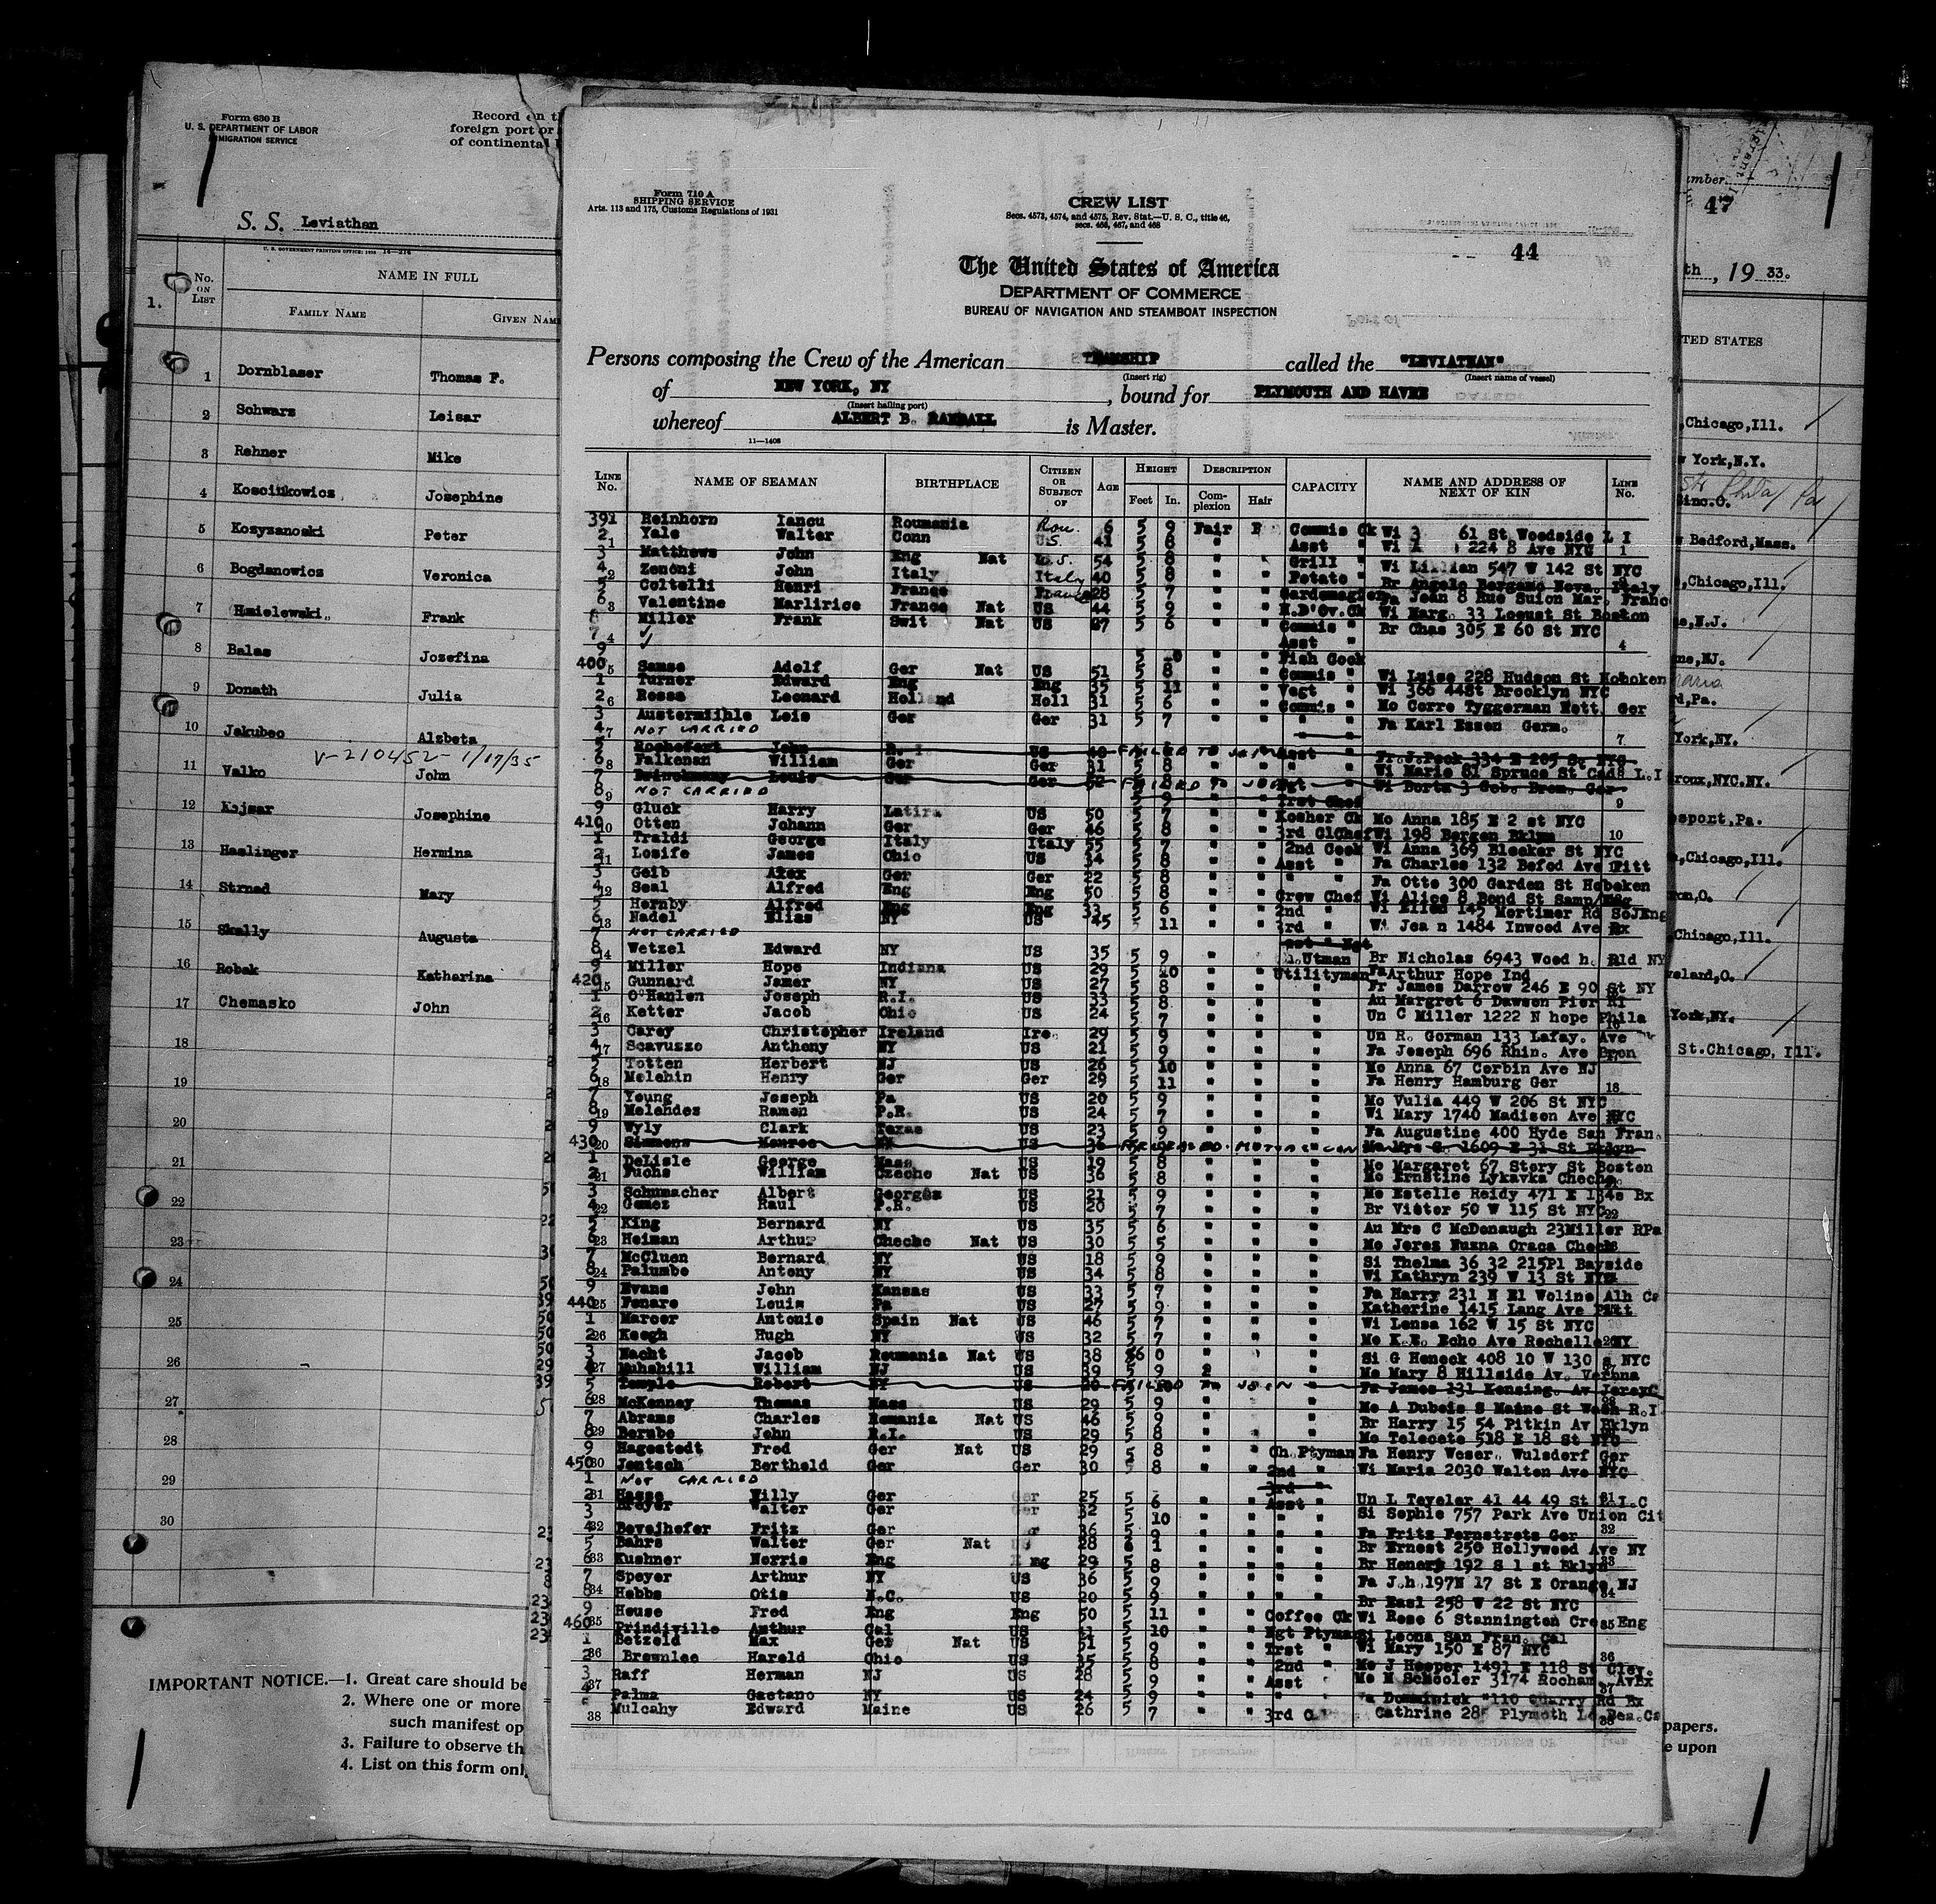 Form 630 B
U. S. DEPARTMENT OF LABOR
IMMIGRATION SERVICE
Record on
foreign port or
of continental
S. S. Leviathan
U. S. GOVERNMENT PRINTING OFFICE: 1933 14—214
No. ON LIST
NAME IN FULL
FAMILY NAME GIVEN NAM
1.
1 Dornblaser Thomas F.
2 Schwarz Leisar
3 Rehner Mike
4 Kosciukowicz Josephine
5 Kozyzanoski Peter
6 Bogdanowics Veronica
7 Hmielewski Frank
8 Balas Josefina
9 Donath Julia
10 Jakubec Alzbeta
V-210452-1/17/35
11 Valko John
12 Kojsar Josephine
13 Haslinger Hermina
14 Strnad Mary
15 Skelly Augusta
16 Robak Katharina
17 Chemasko John
18
19
20
21
22
23
24
25
26
27
28
29
30
IMPORTANT NOTICE.—1. Great care should be
2. Where one or more
such manifest op
3. Failure to observe th
4. List on this form onl
Form 710 A
SHIPPING SERVICE
Arts. 113 and 175, Customs Regulations of 1931
CREW LIST
Secs. 4573, 4574, and 4575, Rev. Stat.—U. S. C., title 46,
secs. 466, 467, and 468
44
The United States of America
DEPARTMENT OF COMMERCE
BUREAU OF NAVIGATION AND STEAMBOAT INSPECTION
Persons composing the Crew of the American STEAMSHIP called the "LEVIATHAN"
(Insert rig) (Insert name of vessel)
of NEW YORK, NY, bound for PLYMOUTH AND HAVRE
(Insert hailing port)
whereof ALBERT B. RANDALL is Master.
11—1408
LINE No. NAME OF SEAMAN BIRTHPLACE CITIZEN OR SUBJECT OF AGE HEIGHT Feet In. DESCRIPTION Complexion Hair CAPACITY NAME AND ADDRESS OF NEXT OF KIN LINE No.
391 Reinhorn Iancu Roumania Rou. 6 5 9 Fair B Commis Ck Wi 3 61 St Woodside L I
2 Yale Walter Conn U.S. 41 5 6 " " Asst " Wi 224 8 Ave NYC
3 Matthews John Eng Nat U.S. 54 5 8 " " Grill " Wi Lillian 547 W 142 St NYC
4 Zenoni John Italy Italy 40 5 8 " " Potato " Br Angelo Bergamo Nova. Italy
5 Coltelli Henri France France 28 5 7 " " Pa Jean 8 Rue Suion Mar. Franc
6 Valentine Marlirice France Nat US 44 5 9 " " H.D'Ov.Ck Wi Marg. 33 Locust St Boston
Miller Frank Swit Nat US 27 5 6 " " Commis " Br Chas 305 E 60 St NYC
Asst "
9 Fish Cook
400 Samse Adolf Ger Nat US 51 5 8 " " Commis " Wi Luise 228 Hudson St Hoboken
1 Turner Edward Eng Eng 35 5 11 " " Vegt " Wi 366 44St Brooklyn NYC
2 Rossa Leonard Holland Holl 31 5 6 " " Commis " Mo Corre Tyggerman Nett. Ger
3 Austermiihle Lois Ger Ger 31 5 7 " " " " Fa Karl Essen Germ.
4 NOT CARRIED
5 Rochefort John R. I. US 40 FAILED TO JOIN Asst " Fr J.Peck 334 E 205 St NYC
6 Falkenan William Ger Ger 31 5 8 " " Wi Marie 81 Spruce St Cad8 L.I
7 Louis Ger Ger 52 5 8 FAILED TO JOIN
8 NOT CARRIED
9 Gluck Harry US 50 5 7 " " Kosher Ck Mo Anna 185 E 2 st NYC
410 Otten Johann Ger Ger 46 5 8 " " 3rd ClChef Wi 198 Bergen Bklyn
1 Traldi George Italy Italy 55 5 7 " " 2nd Cook Wi Anna 369 Bleeker St NYC
2 Losife James Ohio US 34 5 8 " " Asst " Fa Charles 132 Befod Ave Pitt
3 Geib Alex Ger Ger 22 5 8 " " " " Fa Otto 300 Garden St Hoboken
4 Seal Alfred Eng Eng 50 5 8 " " Crew Chef Wi Alice 8 Bond St Samp/Eng
5 Hornby Alfred Eng Eng 33 5 6 " " 2nd " Wi Ellen 145 Mortimer Rd SoJEng
6 Nadel Elias NY US 45 5 11 " " 3rd " Wi Jea n 1484 Inwood Ave Bx
7 NOT CARRIED
8 Wetzel Edward NY US 35 5 9 " Ch.Utman Br Nicholas 6943 Wood h. Rld NY
9 Miller Hope Indiana US 29 5 10 " " Utilityman Fa Arthur Hope Ind
420 Gunnard Jamer NY US 27 5 8 " " " Fr James Darrow 246 E 90 St NY
1 O'Hanlen Joseph R.I. US 33 5 8 " " " Au Margret 6 Dawson Pier RI
2 Ketter Jacob Ohio US 24 5 7 " " " Un C Miller 1222 N hope Phila
3 Carey Christopher Ireland Ire. 29 5 9 " " " Un R. Gorman 133 Lafay. Ave
4 Scavuzzo Anthony NY US 21 5 9 " " " Fa Joseph 696 Rhin. Ave Bron
5 Totten Herbert NJ US 26 5 10 " " " Mo Anna 67 Corbin Ave NJ
6 Melehin Henry Ger Ger 29 5 11 " " " Fa Henry Hamburg Ger
7 Young Joseph Pa US 20 5 9 " " " Mo Vulia 449 W 206 St NYC
8 Melendez Ramon P.R. US 24 5 7 " " " Wi Mary 1740 Madison Ave NYC
9 Wyly Clark Texas US 23 5 9 " " " Fa Augustine 400 Hyde San Fran.
430 Simmens Monroe US 1609 E 31 St Bklyn
1 DeLisle George Mass US 19 5 8 " " " Mo Margaret 67 Story St Boston
2 Fuchs William Czecho Nat US 36 5 8 " " " Mo Ernstine Lykavka Checho
3 Schumacher Albert Georges US 21 5 9 " " " Mo Estelle Reidy 471 E 134s Bx
4 Gomez Raul P.R. US 20 5 7 " " " Br Victor 50 W 115 St NYC
5 King Bernard NY US 35 5 6 " " " Au Mrs C McDenaugh 23Miller RPa
6 Heiman Arthur Checho Nat US 30 5 5 " " " Mo Jerez Nuzna Oraca Chech
7 McCluen Bernard NY US 18 5 9 " " " Si Thelma 36 32 215Pl Bayside
8 Palumbe Antony NY US 34 5 8 " " " Wi Kathryn 239 W 13 St NYC
9 Evans John Kansas US 33 5 7 " " " Fa Harry 231 N El Woline Alh Ca
440 Fenaro Louis Pa US 27 5 9 " " " Katherine 1415 Lang Ave Pitt
1 Marcer Antonio Spain Nat US 46 5 7 " " " Wi Lensa 162 W 15 St NYC
2 Keegh Hugh NY US 32 5 7 " " " Mo K.E. Echo Ave Rochelle NY
3 Nacht Jacob Roumania Nat US 38 6 0 " " Si G Heneck 408 10 W 130 s NYC
4 Muhahill William NJ US 39 5 9 " " Mo Mary 8 Hillside Av. Verona
5 Temple Robert NY US 20 5 10 FAILED TO JOIN Fa James 131 Kensing. Av JerseyC
6 McKenney Thomas Mass US 29 5 9 " " " Mo A Dubois 8 Maine St Wash R.I
7 Abrams Charles Romania Nat US 46 5 9 " " " Br Harry 15 54 Pitkin Av Bklyn
8 Berube John R.I. US 29 5 8 " " " Mo Telecete 518 E 18 St NYC
9 Hagestedt Fred Ger Nat US 29 5 8 " " Ch.Ptyman Fa Henry Weser. Wulsdorf Ger
450 Jentsch Berthold Ger Ger 30 5 8 " " 2nd " Wi Maria 2030 Walton Ave NYC
1 NOT CARRIED 3rd "
2 Hasse Willy Ger Ger 25 5 6 " " Asst " Un L Teveler 41 44 49 St L.I.C
3 Breyer Walter Ger Ger 32 5 10 " " " Si Sophie 757 Park Ave Union Cit
4 Bevajhofer Fritz Ger 36 5 9 " " " Fa Fritz Fernstrets Ger
5 Bahrs Walter Ger Nat US 28 6 1 " " " Br Ernest 250 Hollywood Ave NY
6 Kushner Norris Eng Eng 29 5 8 " " " Br Henery 192 S 1 st Bklyn
7 Speyer Arthur NY US 36 5 9 " " " Fa Joh 197N 17 St E Orange NJ
8 Hebbs Otis N.C. US 20 5 9 " " " Br Basl 258 W 22 St NYC
9 House Fred Eng Eng 50 5 11 " " Coffee Ck Wi Rose 6 Stannington Cres Eng
460 Prindiville Anthur Cal US 5 10 " " Ngt Ptyman Si Leona San Fran. Cal
1 Betzold Max Ger Nat US 51 5 9 " " Trst " Wi Mary 150 E 87 NYC
2 Brownlee Harold Ohio US 35 5 8 " " 2nd " Mo J Hooper 1491 E 118 St Clev.
3 Raff Herman NJ US 28 5 9 " " Asst " Mo M Schooler 3174 Rocham. AvBx
4 Palma Gaetano NY US 24 5 9 " " " Dominick 110 Quarry Rd Bx
5 Mulcahy Edward Maine US 26 5 7 " " 3rd Cathrine 28 Plymoth
umber
47
th, 19 33.
TED STATES
Chicago,Ill.
York,N.Y.
Phila Pa
Cinc.O.
Bedford,Mass.
Chicago,Ill.
N.J.
NJ.
Pa.
York,NY.
ronx,NYC.NY.
spont,Pa.
Chicago,Ill.
on,O.
Chicago,Ill.
eland,O.
York,NY.
St.Chicago, Ill.
papers.
e upon